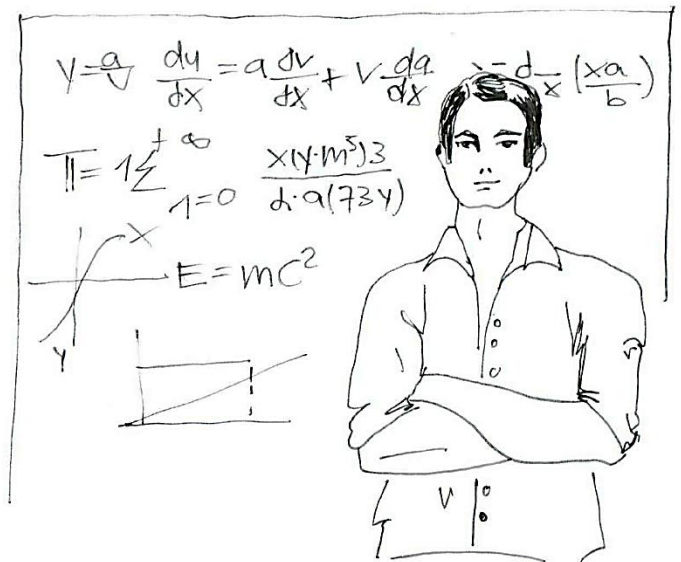 y=a/v du/dx = a dv/dx + v da/dx d/x (xa/b)
π=1Σ +∞ 1=0 x(y·m⁵)3/d·a(73y)
x
E=mc²
y